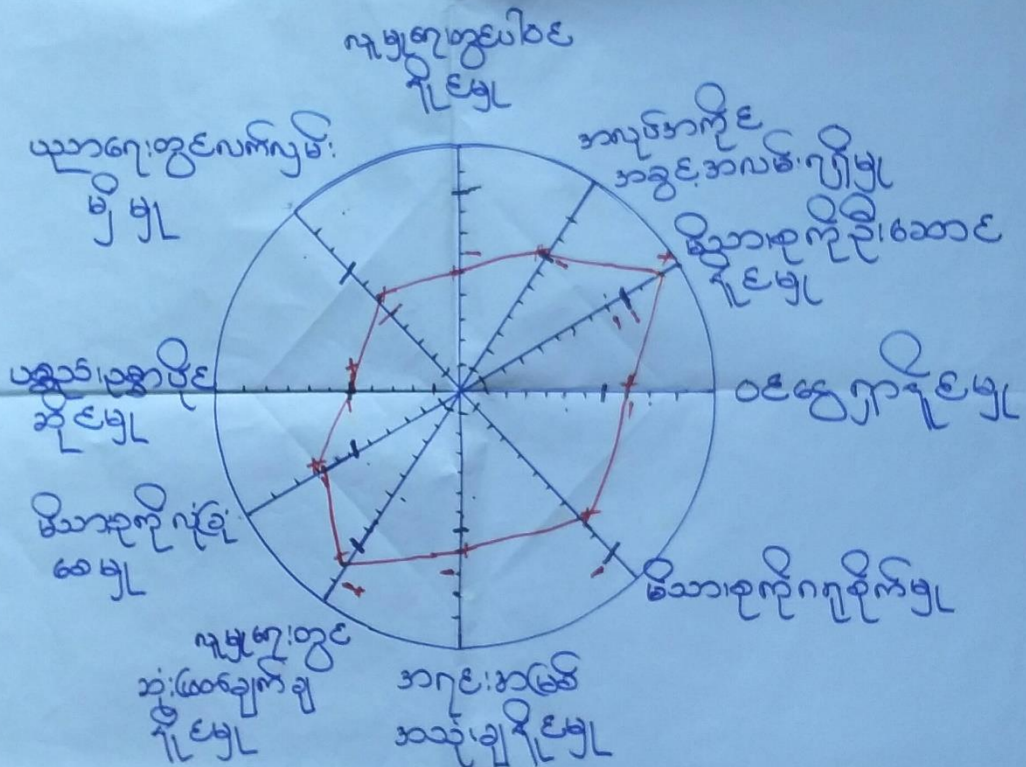 လူမှုရေးတွင်ပါဝင်
နိုင်မှု
အလုပ်အကိုင်
အခွင့်အလမ်းရရှိမှု
မိသားစုကိုဦးဆောင်
နိုင်မှု
ဝင်ငွေရှာနိုင်မှု
မိသားစုကိုဂရုစိုက်မှု
အရင်းအမြစ်
အသုံးချနိုင်မှု
လူမှုရေးတွင်
ဆုံးဖြတ်ချက်ချ
နိုင်မှု
မိသားစုကိုလုံခြုံ
စေမှု
ပစ္စည်းဥစ္စာပိုင်
ဆိုင်မှု
ပညာရေးတွင်လက်လှမ်း
မှီမှု